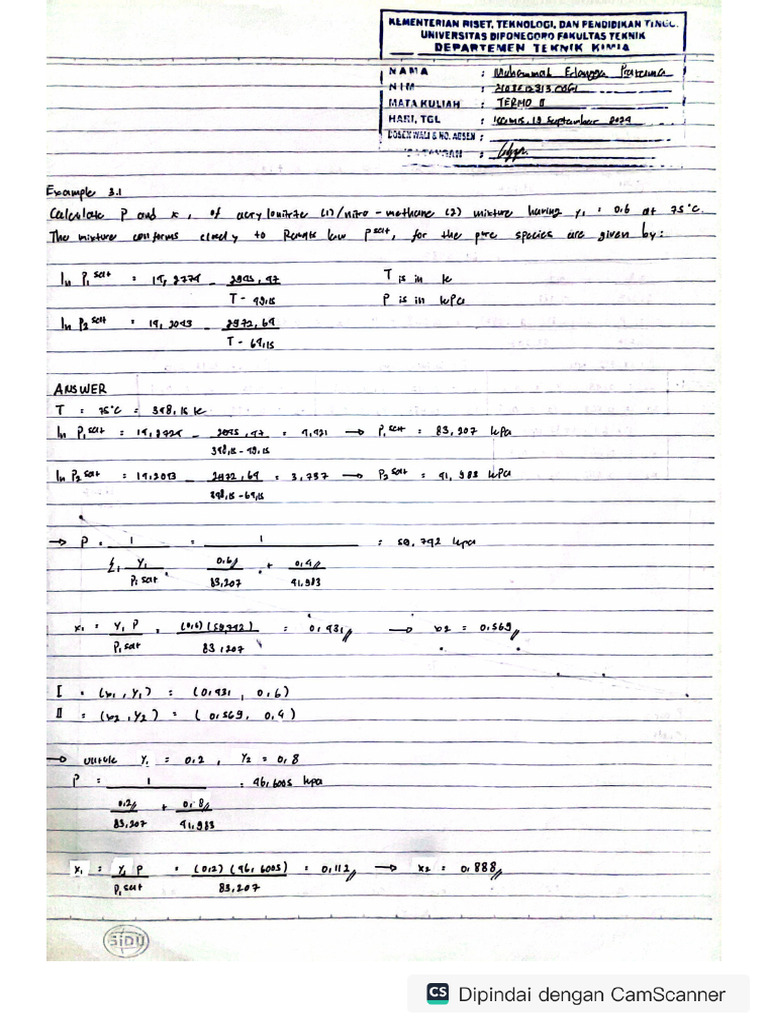 KEMENTERIAN RISET, TEKNOLOGI, DAN PENDIDIKAN TINGGI
UNIVERSITAS DIPONEGORO FAKULTAS TEKNIK
DEPARTEMEN TEKNIK KIMIA
NAMA : Muhammad Erlangga
NIM :
MATA KULIAH : TERMO II
HARI, TGL : Kamis, 19 September 2024
DOSEN WALI & NO. ABSEN :
:
Example 3.1
Calculate P and x, of acrylonitrile (1)/nitro-methane (2) mixture having y1 = 0.6 at 75°C.
The mixture conforms closely to Raoults law Psat, for the pure species are given by:
ln P1 sat = 14,2724 - 2945,47 / T - 49,15 T is in K
P is in kPa
ln P2 sat = 14,2043 - 2972,64 / T - 64,15
ANSWER
T = 75°C = 348,15 K
ln P1 sat = 14,2724 - 2945,47 / 348,15 - 49,15 = 4,421 → P1 sat = 83,207 kPa
ln P2 sat = 14,2043 - 2972,64 / 348,15 - 64,15 = 3,737 → P2 sat = 41,983 kPa
→ P = 1 / Σi yi / Pi sat = 1 / 0.6 / 83,207 + 0,4 / 41,983 = 59,742 kPa
x1 = y1 P / P1 sat = (0,6) (59,742) / 83,207 = 0,431 → x2 = 0,569
I = (x1, y1) = (0,431, 0,6)
II = (x2, y2) = (0,569, 0,4)
→ untuk y1 = 0.2, y2 = 0,8
P = 1 / 0.2 / 83,207 + 0,8 / 41,983 = 46,6005 kPa
x1 = y1 P / P1 sat = (0,2) (46,6005) / 83,207 = 0,112 → x2 = 0,888
SIDU
CS Dipindai dengan CamScanner